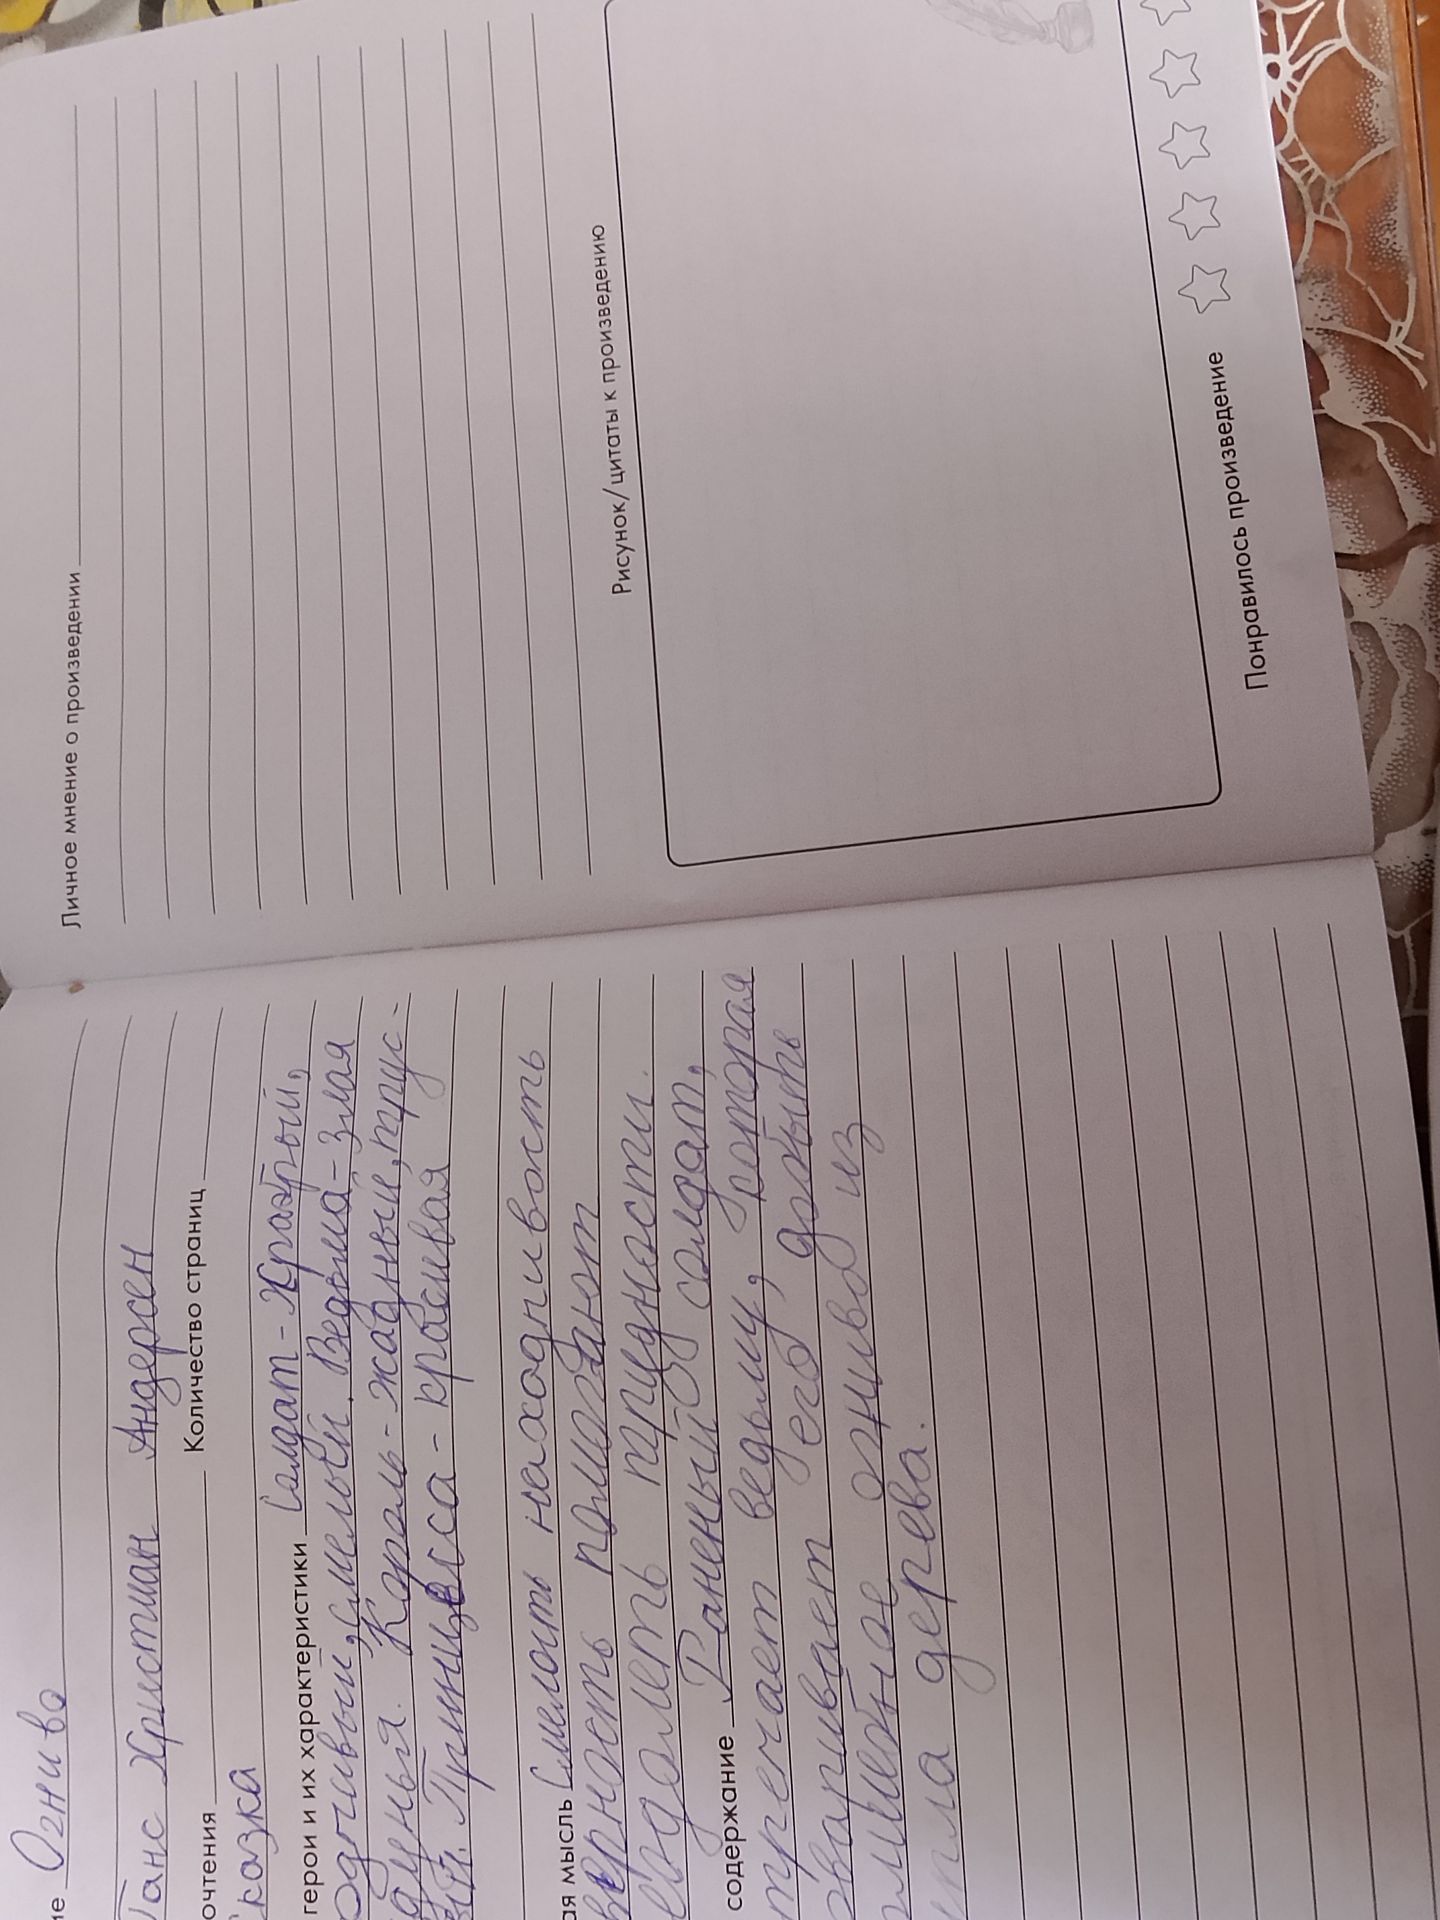 ие Огниво
Ганс Христиан Андерсен
очтения Количество страниц
казка
герои и их характеристики Солдат - Храбрый,
одчивый, Смелый. Ведьма - Злая
Король - жадный, трус-
Принцесса - красивая
ая мысль Смелость находчивость
верность помогают
еодолеть трудности.
содержание Раненый солдат,
тречает ведьму, которая
оваривает его добыть
олшебное огниво из
упла дерева.
Личное мнение о произведении
Рисунок/цитаты к произведению
Понравилось произведение